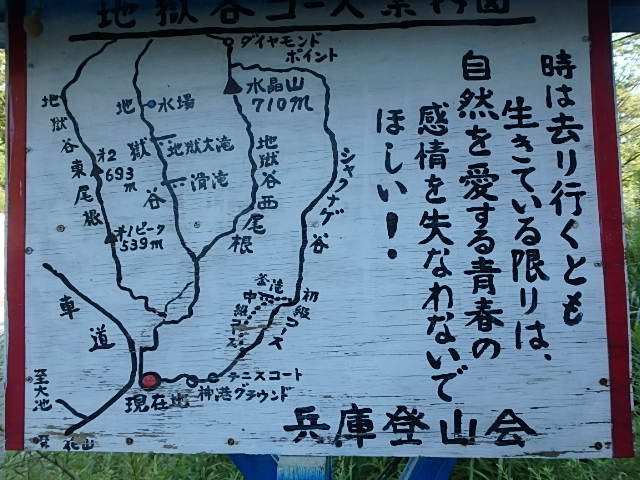 地獄谷コース案内図
ダイヤモンド
ポイント
水晶山
710m
地獄谷東尾根
オ2
693m
オ1ピーク
539m
地獄谷
水場
地獄大滝
滑滝
地獄谷西尾根
シャクナゲ谷
釜滝
中級コース
初級コース
車道
テニスコート
神港グラウンド
現在地
至大池
至花山
時は去り行くとも
生きている限りは、
自然を愛する青春の
感情を失なわないで
ほしい!
兵庫登山会